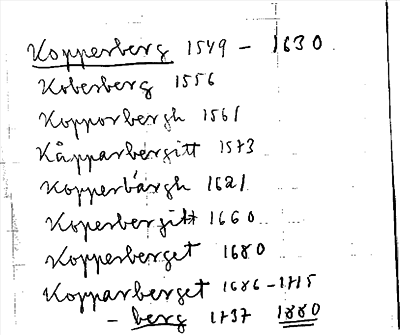 Kopperberg 1549 - 1630
Koberberg 1556
Kopporbergh 1561
Kåpparbergitt 1573
Kopperbärgh 1621
Koperbergitt 1660
Kopperberget 1680
Kopparberget 1686-1715
- berg 1737 1880